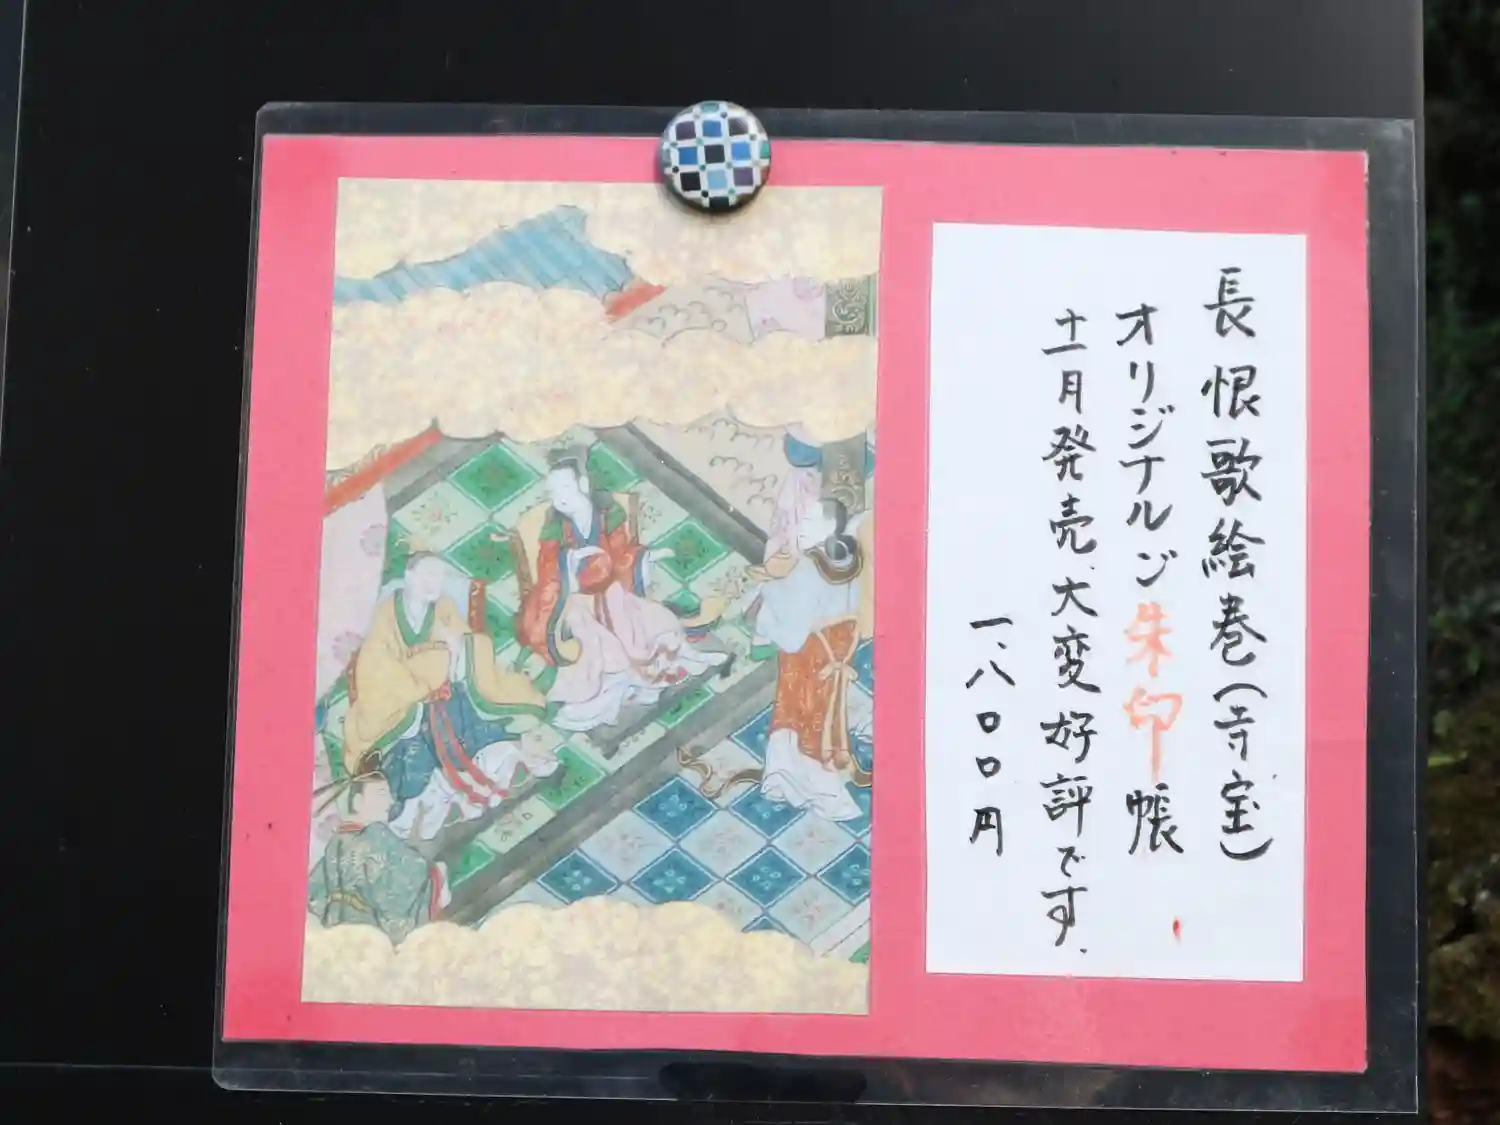 長恨歌絵巻(寺宝)
オリジナルジ朱印帳
十一月発売、大変好評です.
一、八〇〇円